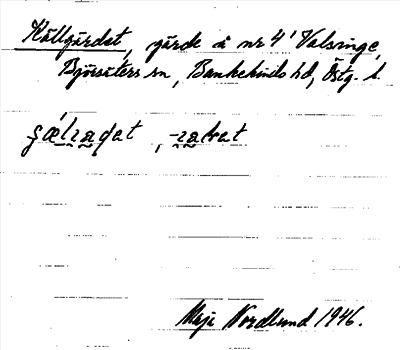 Källgärdet, gärde å nr 4 Valsinge,
Björsäters sn, Bankekinds hd, Östg. l.
Maje Nordlund 1946.